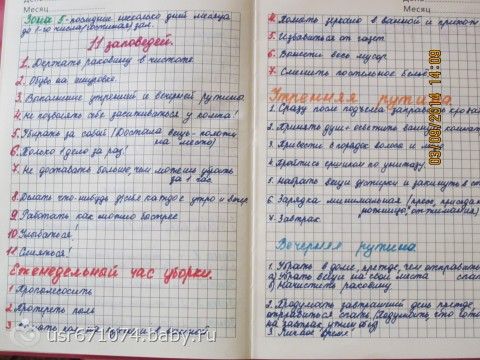 Месяц
Зона 5 - последние несколько дней месяца
до 1-го числа, гостинная) зал.
11 заповедей.
1. Держать раковину в чистоте.
2. Обувь на шнуровке.
3. Выполнение утренней и вечерней рутины.
4 не позволять себе засиживаться у компа!
5 Убирать за собой! (Достала вещь - положи
на место)
6 Только 1 дело за раз!
7 Не доставать больше, чем можешь убрать
за 1 час
8 Делать что-нибудь для себя каждое утро и вечер
9 Работать как можно быстрее
10 Улыбаться!
11 Смеяться!
Еженедельный час уборки.
1 Пропылесосить
2 Протереть пыль
3
Месяц
4. Помыть зеркало в ванной и прихож
5 Избавиться от газет.
6 Вынести весь мусор.
7 Сменить постельное белье
Утренняя рутина.
1. Сразу после подъема заправить кроват
2. Принять душ + осветить ванную комнат
3 Привести в порядок волосы и
4. Пройтись ершиком по унитазу.
5. набрать вещи для стирки и закинуть в ст
6 Зарядка минимальная (пресс, приседан
отжимания)
7 Завтрак.
Вечерняя рутина
1. Убрать в доме, прежде, чем отправать
а) Убрать вещи на свои места спать
б) Начистить раковину
2. Продумать завтрашний день прежде,
отправиться спать (Подумать, что готов
на завтрак, ужин, обед)
3 Личное время!
03/09/2014 14:09
usr671074.baby.ru